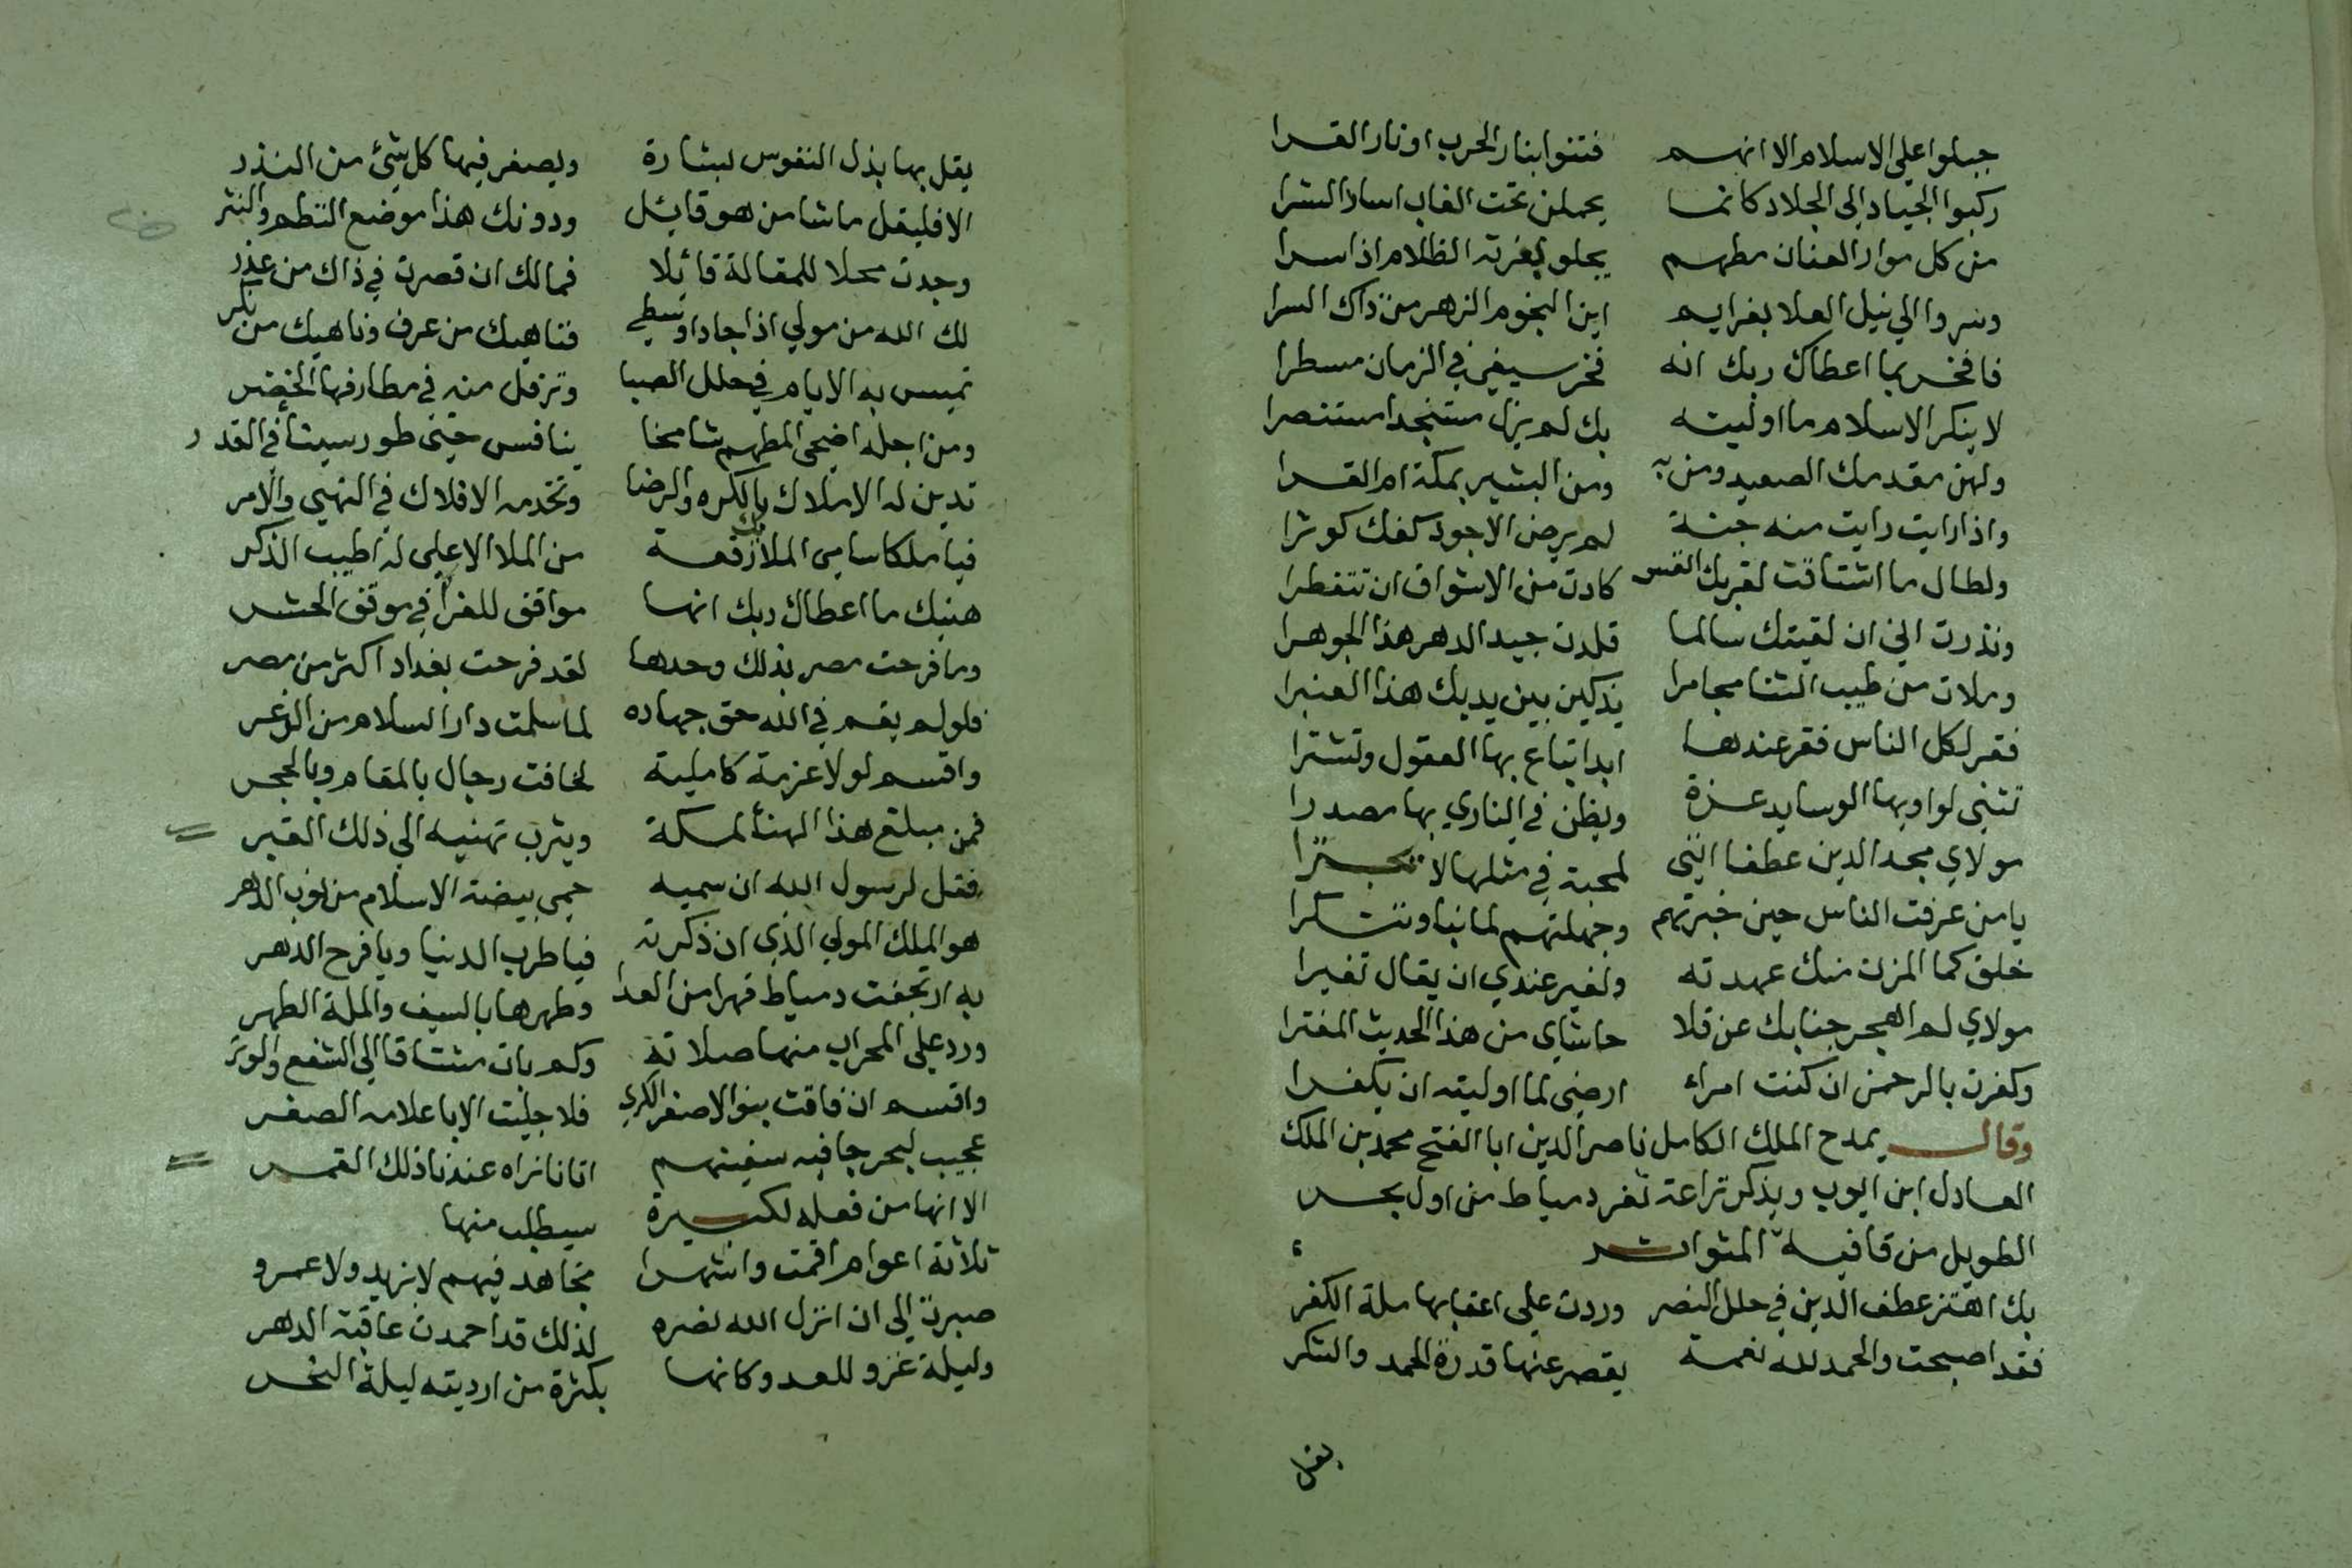 جبلوا على الاسلام الا انهم فتنوا بنار الحرب او نار القرا
ركبوا الجياد الى الجلاد كانما يحملن تحت الغاب اساد الشرا
من كل موار العنان مطهم يجلو بغرته الظلام اذا سرا
وسروا الي نيل العلا بغرايم اين النجوم الزهر من ذاك السرا
فافخر بما اعطاك ربك انه فخر سيغي في الزمان مسطرا
لا ينكر الاسلام ما اوليته بك لم يزل مستنجدا مستنصرا
ولهن مقدمك الصعيد ومن به ومن البشير بمكة ام القرا
واذا رايت رايت منه جنة لم يرض الا جود كفك كوثرا
ولطال ما اشتاقت لقربك انفس كادت من الاشواق ان تتفطرا
ونذرت اني ان لقيتك سالما قلدت جيد الدهر هذا الجوهرا
وملات من طيب الثنا مجامرا يذكين بين يديك هذا العنبرا
فقر لكل الناس فقر عندها ابدا تباع بها العقول وتشترا
تثنى لراويها الوسايد عزة ويظن في النادي بها مصدرا
مولاي مجد الدين عطفا انني لمحبة في مثلها لا
يا من عرفت الناس حين خبرتهم وجهلتهم لما نبا وتنكرا
خلق كما المزن منك عهدته ولغير عندي ان يقال تغيرا
مولاي لم اهجر جنابك عن قلا حاشاي من هذا الحديث المفترا
وكفرت بالرحمن ان كنت امراء ارضى لما اوليته ان يكفرا
وقال يمدح الملك الكامل ناصر الدين ابا الفتح محمد بن الملك
العادل ابن ايوب ويذكر تراعة ثغر دمياط من اول بحر
الطويل من قافية المتواتر
بك اهتز عطف الدين في حلل النصر وردت على اعقابها ملة الكفر
فقد اصبحت والحمد لله نعمة يقصر عنها قدرة الحمد والشكر
يقل بها بذل النفوس لبشارة ويصغر فيها كل شئ من النذر
الا فليقل ما شا من هو قايل ودونك هذا موضع النظم والنثر
وجدت محلا للمقالة قائلا فمالك ان قصرت في ذاك من عذر
لك الله من مولي اذا جاد او سطي فناهيك من عرف وناهيك من نكر
تميس به الايام في حلل الصبا وترفل منه في مطارفها الخضر
ومن اجله اضحى المطهم شامخا ينافس حتى طور سينا في القدر
تدين له الاملاك بالكره والرضا وتخدمه الافلاك في النهي والامر
فيا ملكا سامى الملائك رفعة من الملا الاعلى له اطيب الذكر
هنيك ما اعطاك ربك انها مواقف للغرا في موقف الحشر
وما فرحت مصر بذلك وحدها لقد فرحت بغداد اكثر من مصر
فلو لم يقم في الله حق جهاده لما سلمت دار السلام من الذعر
واقسم لولا عزمة كاملية لخافت رجال بالمقام وبالحجر
فمن مبلغ هذا الهنا لمكة ويثرب تهنيه الي ذلك القبر
فقل لرسول الله ان سميه حمى بيضة الاسلام من نوب الدهر
هو الملك المولي الذي ان ذكرته فيا طرب الدنيا ويا فرح الدهر
به ارتجفت دمياط قهرا من العدا وطهرها بالسيف والملة الطهر
ورد على المحراب منها صلاته وكم بات مشتاقا الي الشفع والوتر
واقسم ان فاقت بنو الاصفر الكرى فلا جليت الا باعلامه الصفر
عجيب لبحر جا فيه سفينهم اتانا نراه عندنا ذلك القمر
الا انها من فعله لكبيرة سيطلب منها
ثلاثة اعوام اقمت واشهرا تجاهد فيهم لا بزيد ولا عمرو
صبرت الى ان انزل الله نصره لذلك قد احمدت عاقبة الدهر
وليلة غزو للعدو كانها بكثرة من ارديته ليلة النحر